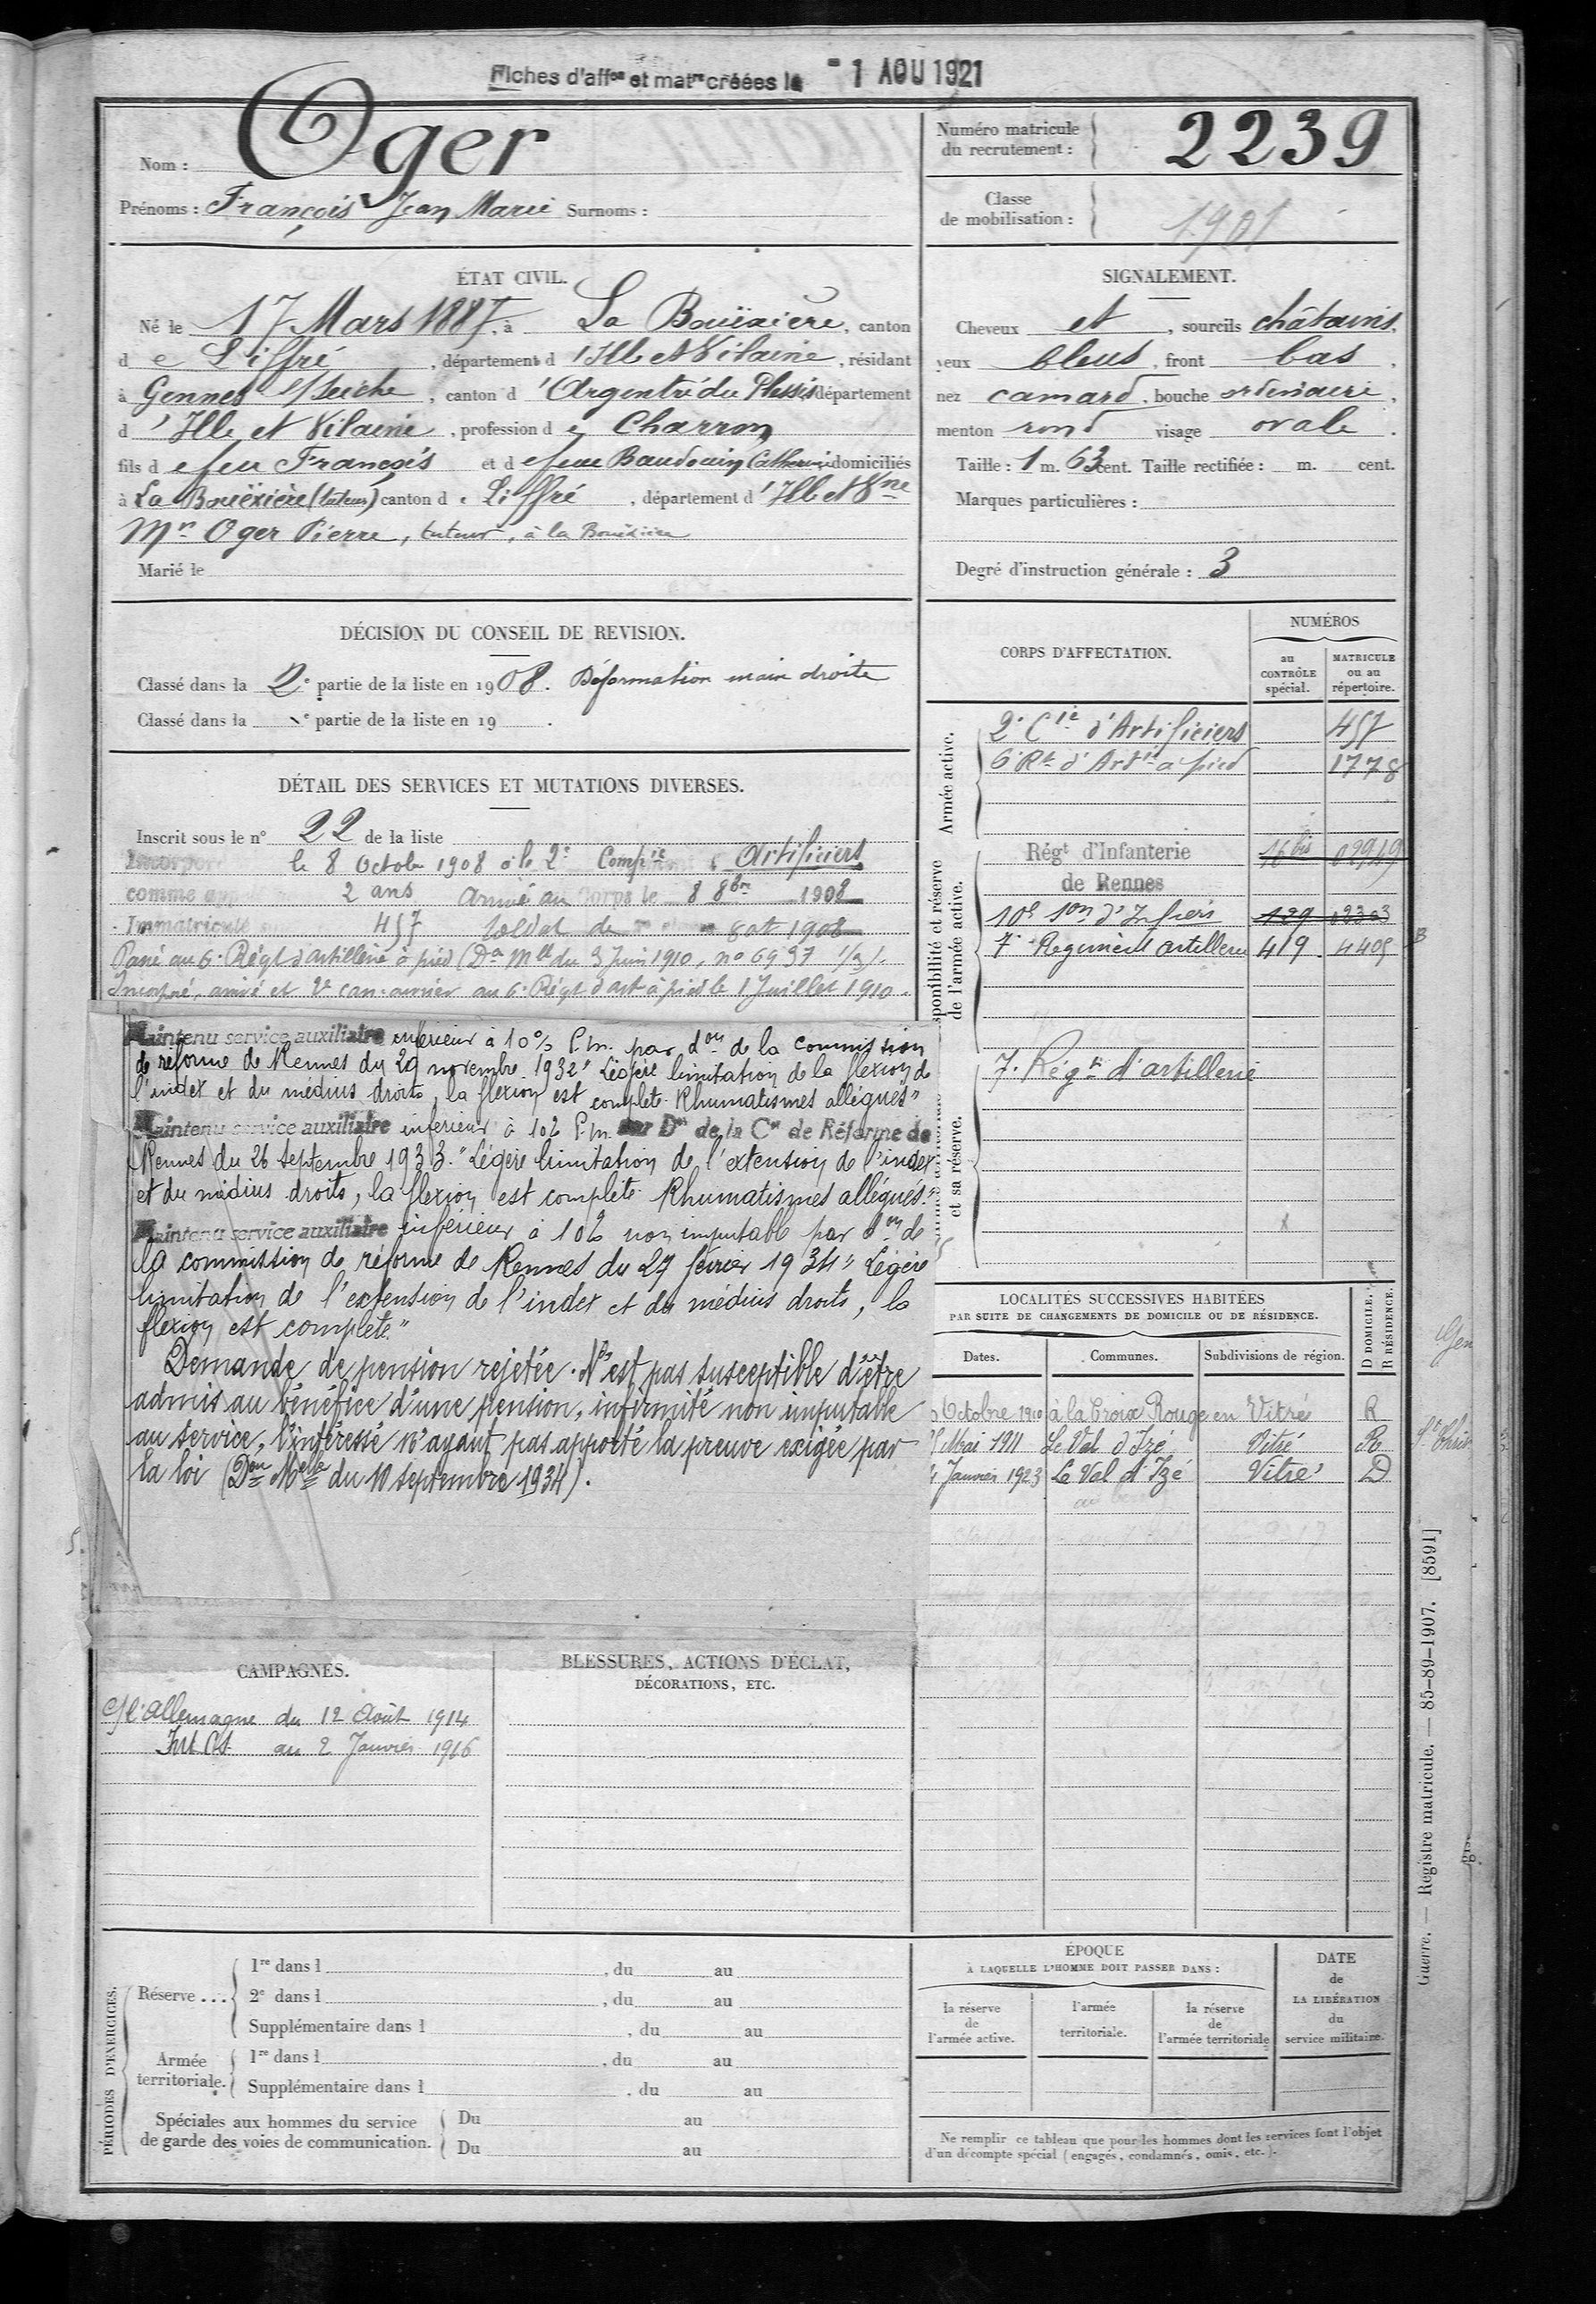 Fiches d'affon et matre créées le - 1 AOU 1921
Nom : Oger
Prénoms : François Jean Marie Surnoms :
Numéro matricule
du recrutement : 2239
Classe
de mobilisation : 1901
ÉTAT CIVIL.
Né le 17 Mars 1887, à La Bouëxière, canton
de Liffré, département d'Ille et Vilaine, résidant
à Gennes s/ Seiche, canton d'Argentré du Plessis département
d'Ille et Vilaine, profession de Charron
fils de feu François et de feue Baudouin Catherine domiciliés
à La Bouëxière (tuteur) canton de Liffré, département d'Ille et Vne
Mr Oger Pierre, tuteur, à la Bouëxière
Marié le
SIGNALEMENT.
Cheveux et, sourcils châtains,
yeux bleus, front bas,
nez camard, bouche ordinaire,
menton rond visage ovale.
Taille : 1 m. 63 cent. Taille rectifiée : m. cent.
Marques particulières :
Degré d'instruction générale : 3
DÉCISION DU CONSEIL DE REVISION.
Classé dans la 2e partie de la liste en 1908. Déformation main droite
Classé dans la e partie de la liste en 19 .
DÉTAIL DES SERVICES ET MUTATIONS DIVERSES.
Inscrit sous le n° 22 de la liste
Incorporé le 8 Octobre 1908 à la 2e Compie d'Artificiers
comme appelé 2 ans Arrivé au Corps le 8 8bre 1908
Immatriculé 457 Soldat de 8 8bre 1908
Passé au 6e Régt d'artillerie à pied (Don Mlle du 3 Juin 1910, no 6997 1/3).
Incorporé, arrivé et 2e can. ouvrier au 6e Régt d'art à pied le 1 Juillet 1910.
Maintenu service auxiliaire inférieur à 10% P.m. par don de la commission
de réforme de Rennes du 29 novembre 1932 "Légère limitation de la flexion de
l'index et du médius droits, la flexion est complète. Rhumatismes allégués"
Maintenu service auxiliaire inférieur à 10% P.m. par Don de la Con de Réforme de
Rennes du 26 septembre 1933. "Légère limitation de l'extension de l'index
et du médius droits, la flexion est complète. Rhumatismes allégués."
Maintenu service auxiliaire inférieur à 10% non imputable par don de
la commission de réforme de Rennes du 27 février 1934 "Légère
limitation de l'extension de l'index et du médius droits, la
flexion est complète."
Demande de pension rejetée. N'est pas susceptible d'être
admis au bénéfice d'une pension, infirmité non imputable
au service, l'intéressé n'ayant pas apporté la preuve exigée par
la loi (Don Melle du 10 septembre 1934).
CORPS D'AFFECTATION.
NUMÉROS
au
CONTRÔLE
spécial.
MATRICULE
ou au
répertoire.
Armée active.
2e Cie d'Artificiers 457
6e Rt d'Artie à pied 1778
Disponibilité et réserve
de l'armée active.
Régt d'Infanterie 16 bis 02949
de Rennes
10e son d'Infiers 129 02303
7e Regiment artillerie 419 4405
et sa réserve.
7e Régt d'artillerie
LOCALITÉS SUCCESSIVES HABITÉES
PAR SUITE DE CHANGEMENTS DE DOMICILE OU DE RÉSIDENCE.
Dates. Communes. Subdivisions de région. D DOMICILE. R RÉSIDENCE.
Octobre 1910 à la Croix Rouge en Vitré R
Mai 1911 Le Val d'Izé Vitré R
Janvier 1923 Le Val d'Izé Vitré D
CAMPAGNES.
C/ l'Allemagne du 12 Août 1914
Int CS au 2 Janvier 1916
BLESSURES, ACTIONS D'ÉCLAT,
DÉCORATIONS, ETC.
PÉRIODES D'EXERCICES.
Réserve ...
1re dans l , du au
2e dans l , du au
Supplémentaire dans l , du au
Armée
territoriale.
1re dans l , du au
Supplémentaire dans l , du au
Spéciales aux hommes du service
de garde des voies de communication.
Du au
Du au
ÉPOQUE
À LAQUELLE L'HOMME DOIT PASSER DANS :
la réserve
de
l'armée active.
l'armée
territoriale.
la réserve
de
l'armée territoriale
DATE
de
LA LIBÉRATION
du
service militaire.
Ne remplir ce tableau que pour les hommes dont les services font l'objet
d'un décompte spécial (engagés, condamnés, omis, etc.).
Guerre. — Registre matricule. — 85-89-1907. [8591]